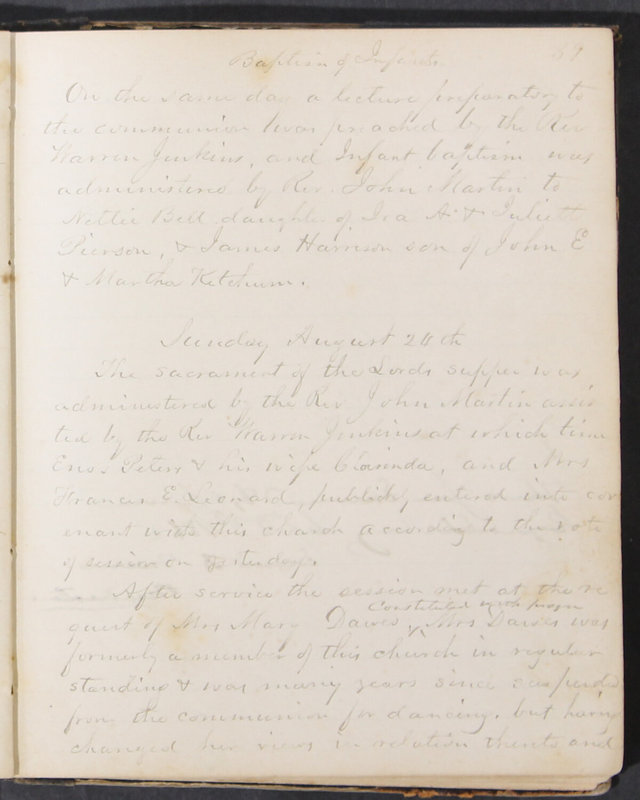 Baptism of Infants
On the same day a lecture preparatory to
the communion was preached by the Rev
Warren Jenkins, and Infant baptism was
administered by Rev. John Martin to
Nettie Bell daughter of Ira A. & Juliette
Pierson, & James Harrison son of John E
& Martha Ketchum.
Sunday August 20th
The sacrament of the Lords supper was
administered by the Rev John Martin assis
ted by the Rev Warren Jenkins at which time
Enos Peters & his wife Clarinda, and Mrs
Frances E. Leonard, publickly entered into cov
enant with this church according to the vote
of session on yesterday.
After service the session met at the re
Constituted with prayer
quest of Mrs Mary Dawes, Mrs Dawes was
formerly a member of this church in regular
standing & was many years since suspended
from the communion for dancing. but having
changed her views in relation thereto and